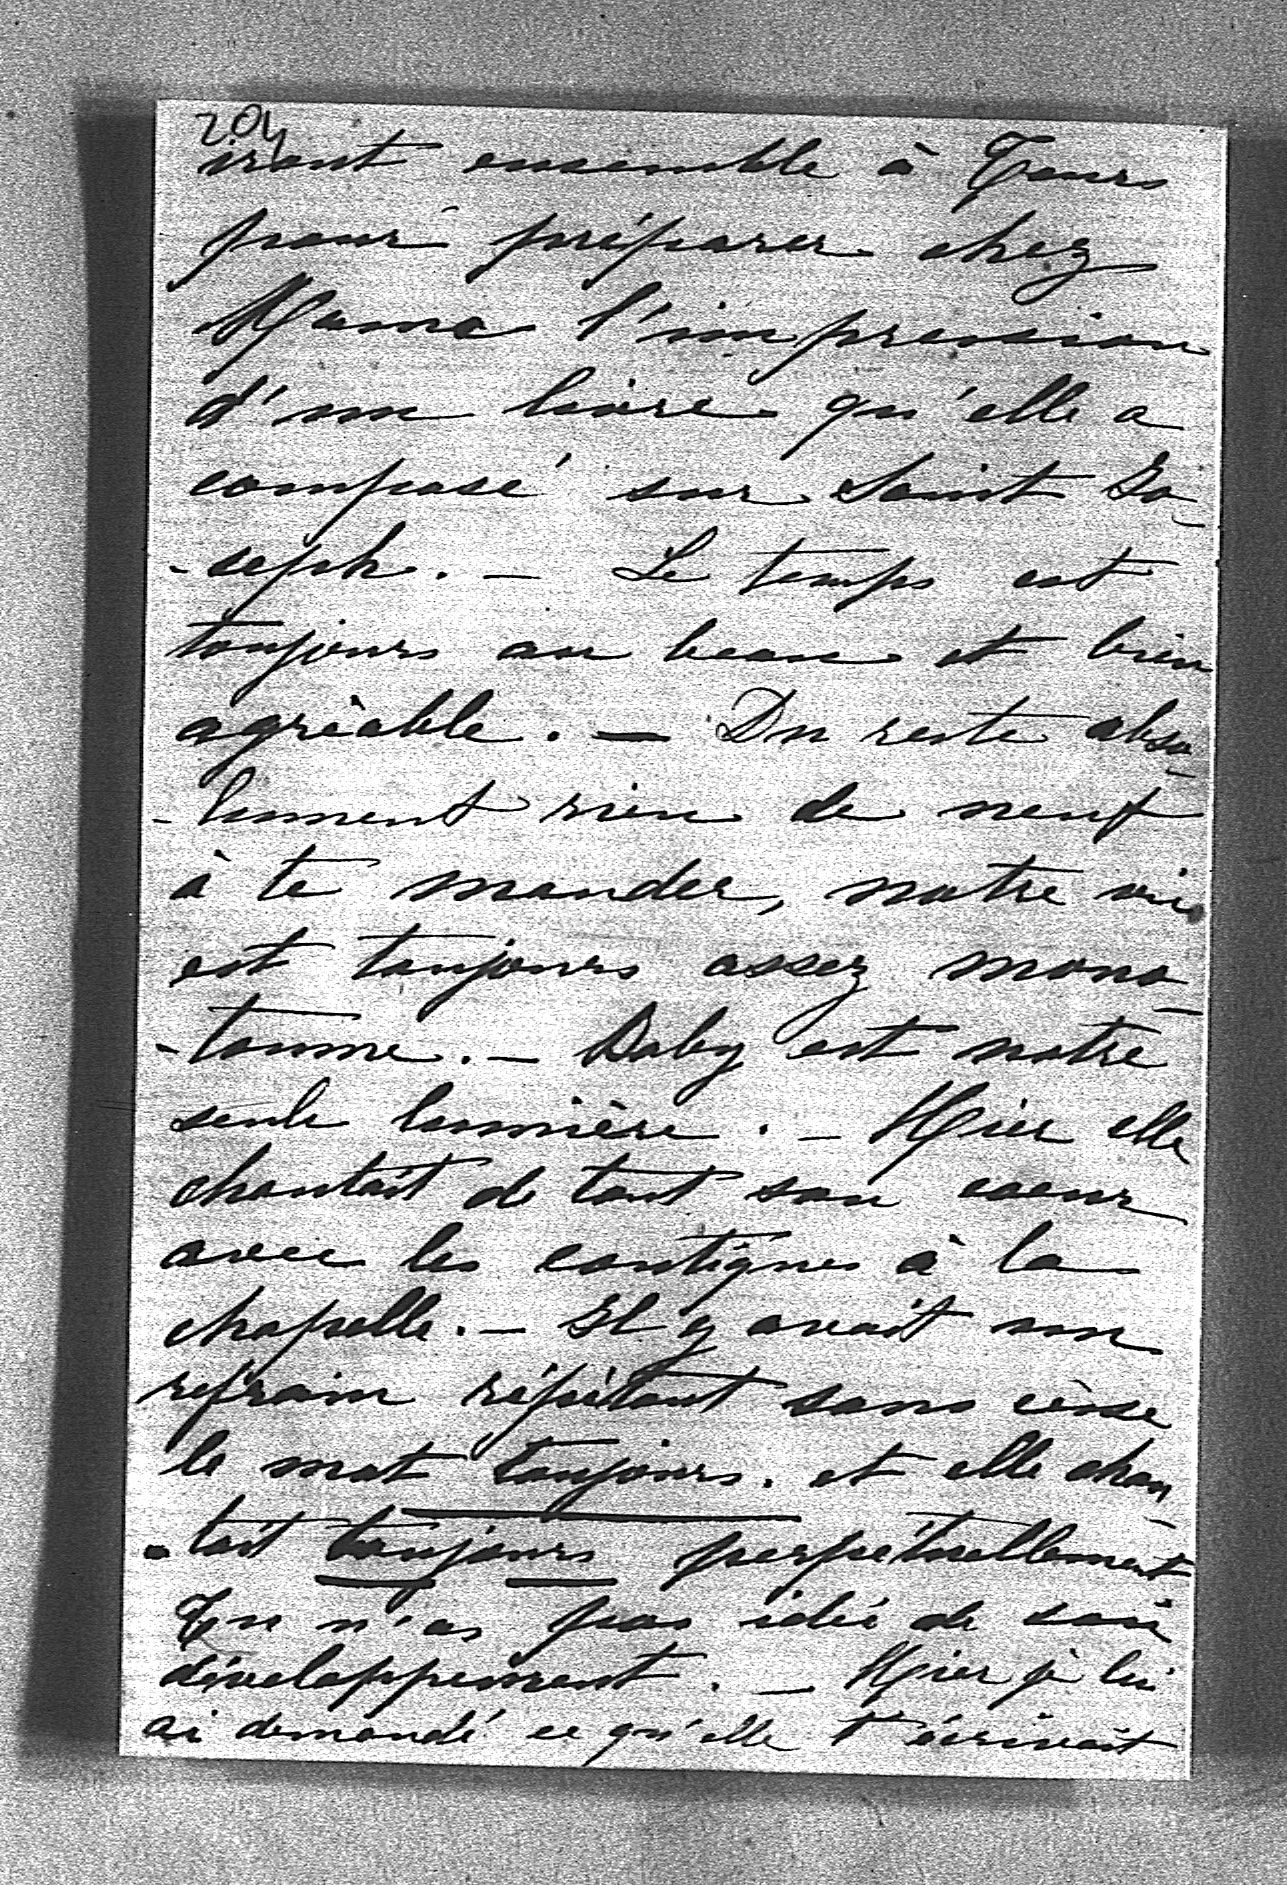 204
iront ensemble à Tours
pour préparer chez
Mame l'impression
d'un livre qu'elle a
composé sur Saint Jo-
-seph. — Le temps est
toujours au beau et bien
agréable. — Du reste abso-
-lument rien de neuf
à te mander, notre vie
est toujours assez mono-
-tonne. — Baby est notre
seule lumière. — Hier elle
chantait de tout son coeur
avec les cantiques à la
chapelle. — Il y avait un
refrain répétant sans cèsse
le mot toujours. et elle chan-
-tait toujours perpétuellement
Tu n'as pas idée de son
développement. — Hier je lui
ai demandé ce qu'elle t'écrivait